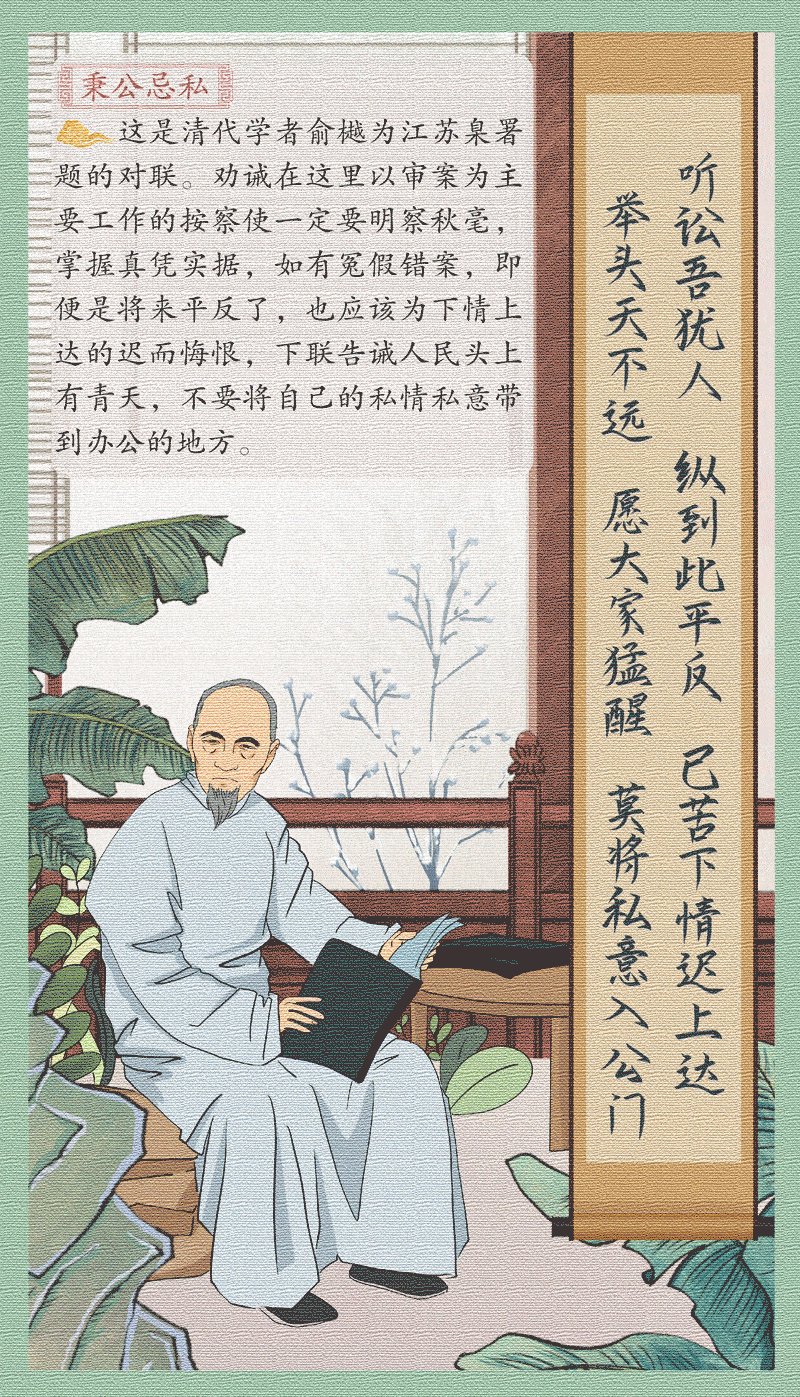 秉公忌私
这是清代学者俞樾为江苏臬署
题的对联。劝诫在这里以审案为主
要工作的按察使一定要明察秋毫，
掌握真凭实据，如有冤假错案，即
便是将来平反了，也应该为下情上
达的迟而悔恨，下联告诫人民头上
有青天，不要将自己的私情私意带
到办公的地方。
听讼吾犹人 纵到此平反 已苦下情迟上达
举头天不远 愿大家猛醒 莫将私意入公门